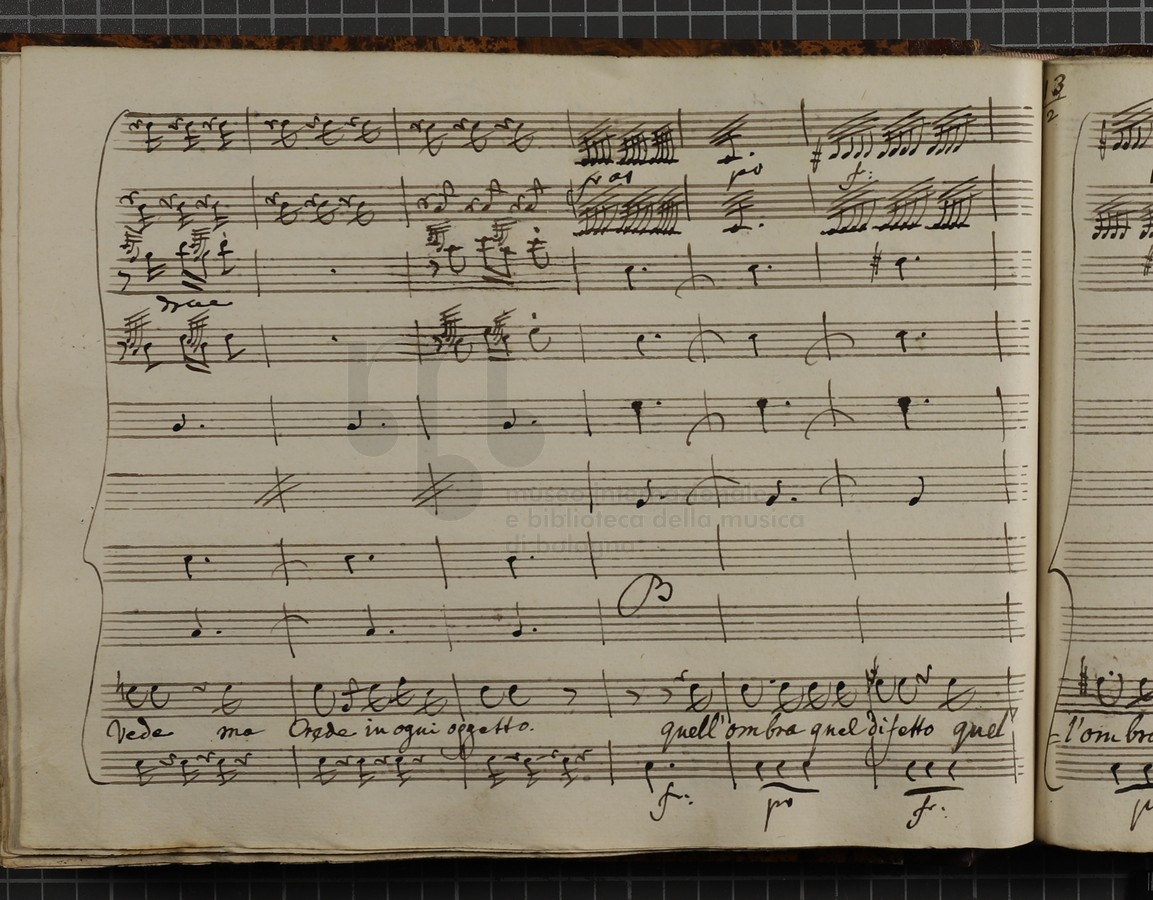 3
2
po
f:
museo internazionale
e biblioteca della musica
di bologna
B
Vede ma Crede in ogni oggetto. quell'ombra quel difetto quel
l'ombra
f: po f: